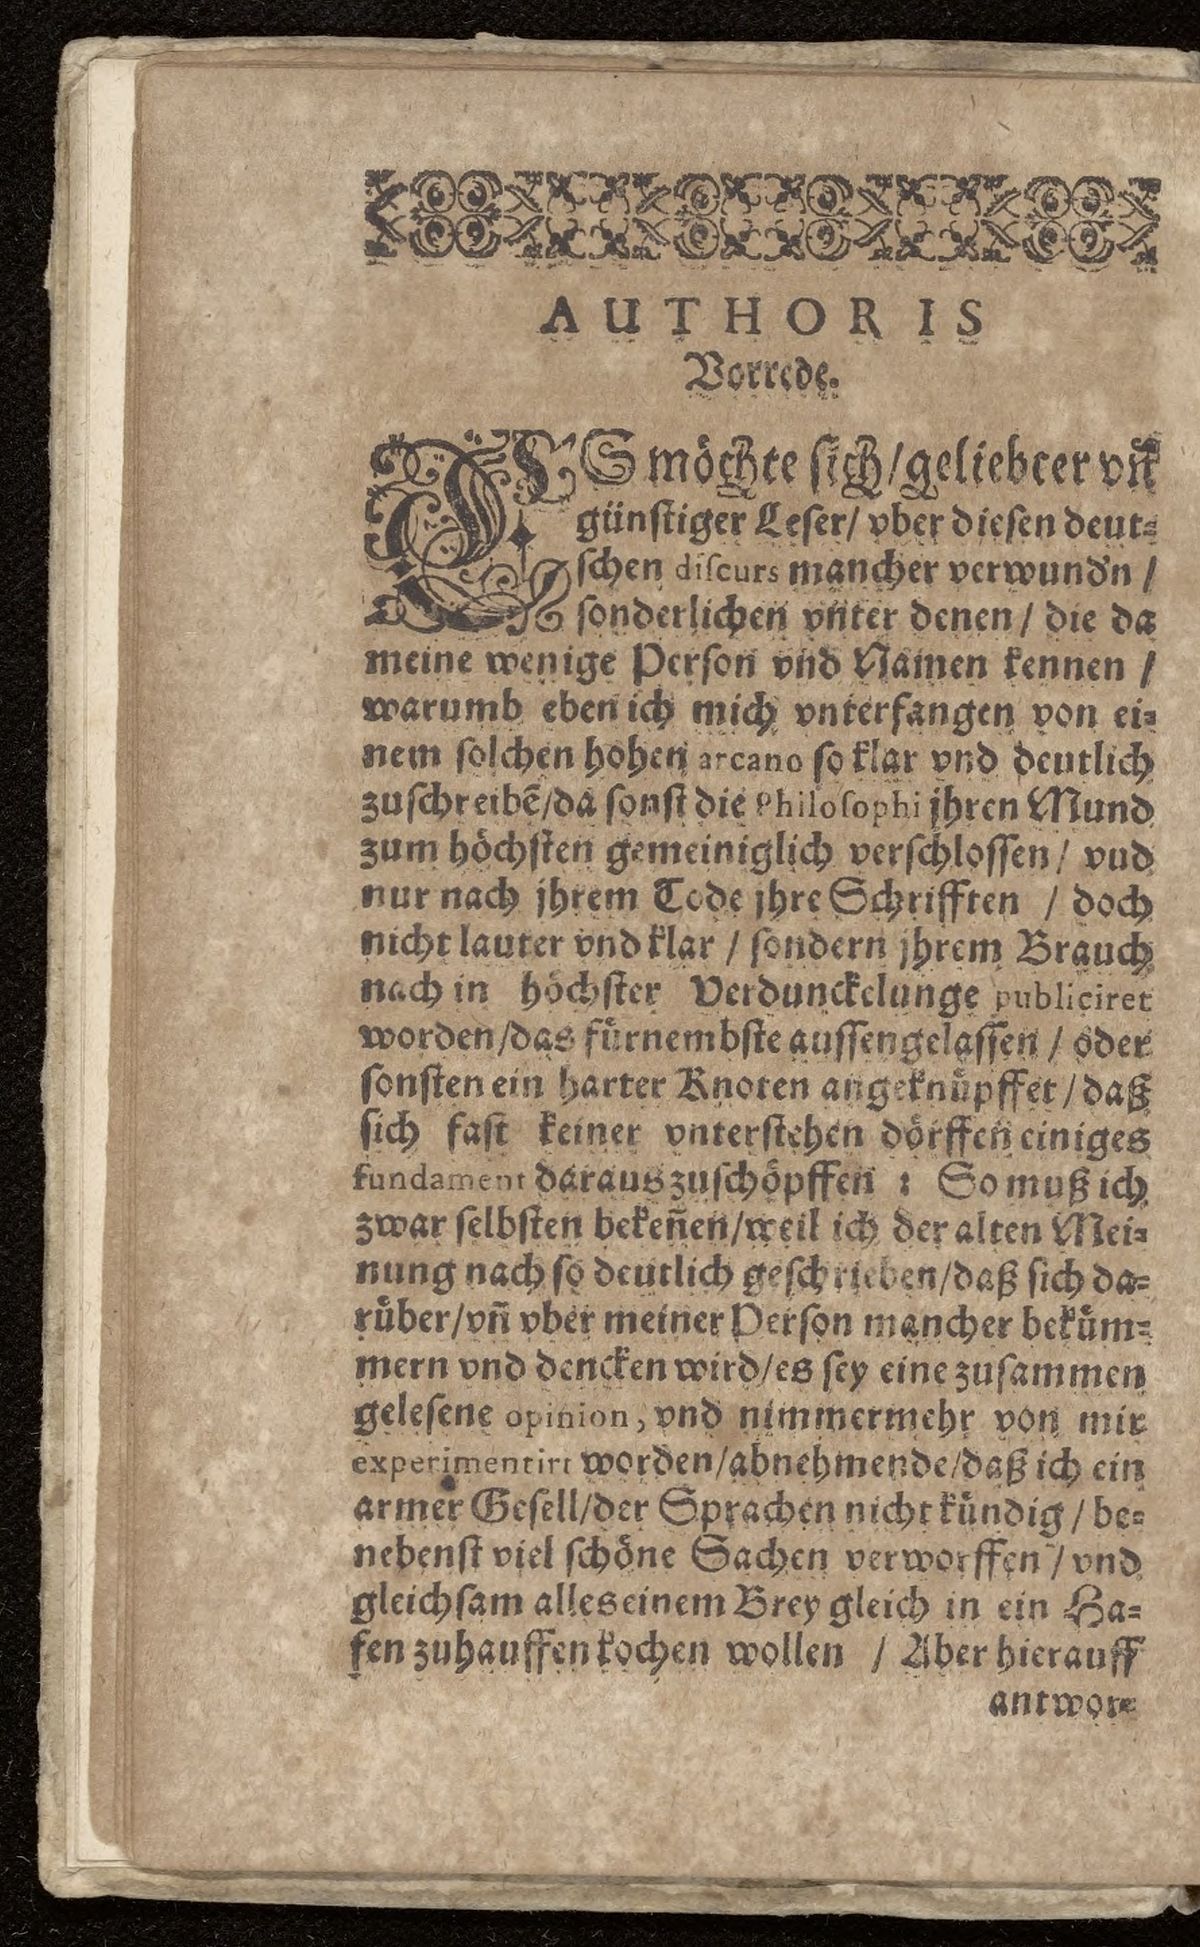 AUTHORIS
Vorrede.
ES möchte sich/geliebter vñ
günstiger Leser/ vber diesen deut⸗
schen discurs mancher verwund'n /
sonderlichen vnter denen/ die da
meine wenige Person vnd Namen kennen /
warumb eben ich mich vnterfangen von ei⸗
nem solchen hohen arcano so klar vnd deutlich
zuschreibẽ/da sonst die Philosophi jhren Mund
zum höchsten gemeiniglich verschlossen/ vud
nur nach jhrem Tode jhre Schrifften / doch
nicht lauter vnd klar / sondern jhrem Brauch
nach in höchster Verdunckelunge publiciret
worden/das fürnembste aussengelassen / oder
sonsten ein harter Knoten angeknüpffet/daß
sich fast keiner vnterstehen dörffen einiges
fundament daraus zuschöpffen : So muß ich
zwar selbsten bekeñen/weil ich der alten Mei⸗
nung nach so deutlich geschrieben/daß sich da⸗
rüber/vñ vber meiner Person mancher beküm⸗
mern vnd dencken wird/es sey eine zusammen
gelesene opinion, vnd nimmermehr von mir
experimentirt worden/abnehmende/daß ich ein
armer Gesell/der Sprachen nicht kündig / be⸗
nebenst viel schöne Sachen verworffen / vnd
gleichsam alles einem Brey gleich in ein Ha⸗
fen zuhauffen kochen wollen / Aber hierauff
antwor⸗